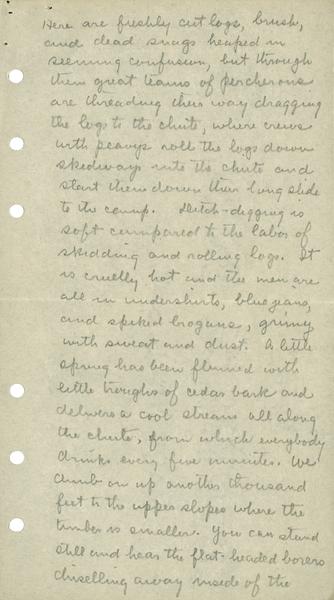 Here are freshly cut logs, brush,
and dead snags heaped in
seeming confusion, but through
them great teams of percherons
are threading their way dragging
the logs to the chute, where crews
with peavys roll the logs down
skidways into the chute and
start them down their long slide
to the camp. Ditch-digging is
soft compared to the labor of
skidding and rolling logs. It
is cruelly hot and the men are
all in undershirts, blue jeans,
and spiked brogans, grimy
with sweat and dust. A little
spring has been flumed with
little troughs of cedar bark and
delivers a cool stream all along
the chute, from which everybody
drinks every five minutes. We
climb on up another thousand
feet to the upper slopes where the
timber is smaller. You can stand
still and hear the flat-headed borers
chiselling away inside of the